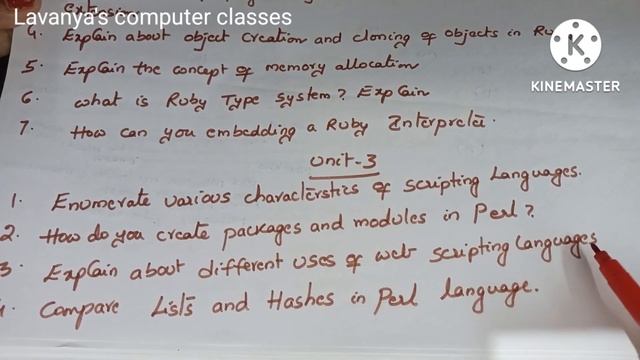 Lavanya's computer classes
extension
4. Explain about object creation and cloning of objects in Ru
5. Explain the concept of memory allocation
6. what is Ruby Type System? Explain
7. How can you embedding a Ruby Interpreter.
KINEMASTER
Unit-3
1. Enumerate various characterstics of scripting Languages.
2. How do you create packages and modules in Perl?
3. Explain about different uses of web scripting Languages
4. Compare Lists and Hashes in Perl language.